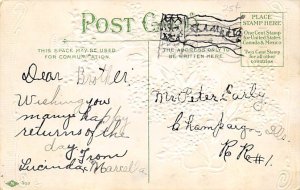 25¢
POST CARD
PLACE
STAMP HERE
One Cent Stamp
for United States
Canada & Mexico
Two Cent Stamp
for all other
countries
THIS SPACE MAY BE USED
FOR COMMUNICATION.
THE ADDRESS ONLY
Dear Brother
Wishing you
many happy
returns of the
day. From
Lucinda Marcella
Mr Peter Early
Champaign
R R #1